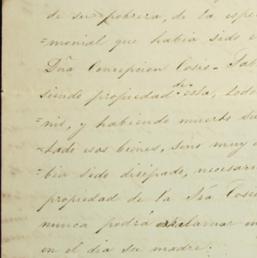 de su pobreza, de la espe
=monial que habia sido e
Dña Concepcion Cosio. Tal
siendo propiedad de esta, todo
nio, y habiendo muerto su
=hado esos bienes, sino muy
=bia sido disipado, necesari
propiedad de la Sra Cosio
nunca podrá reclamar en
en el dia su madre.